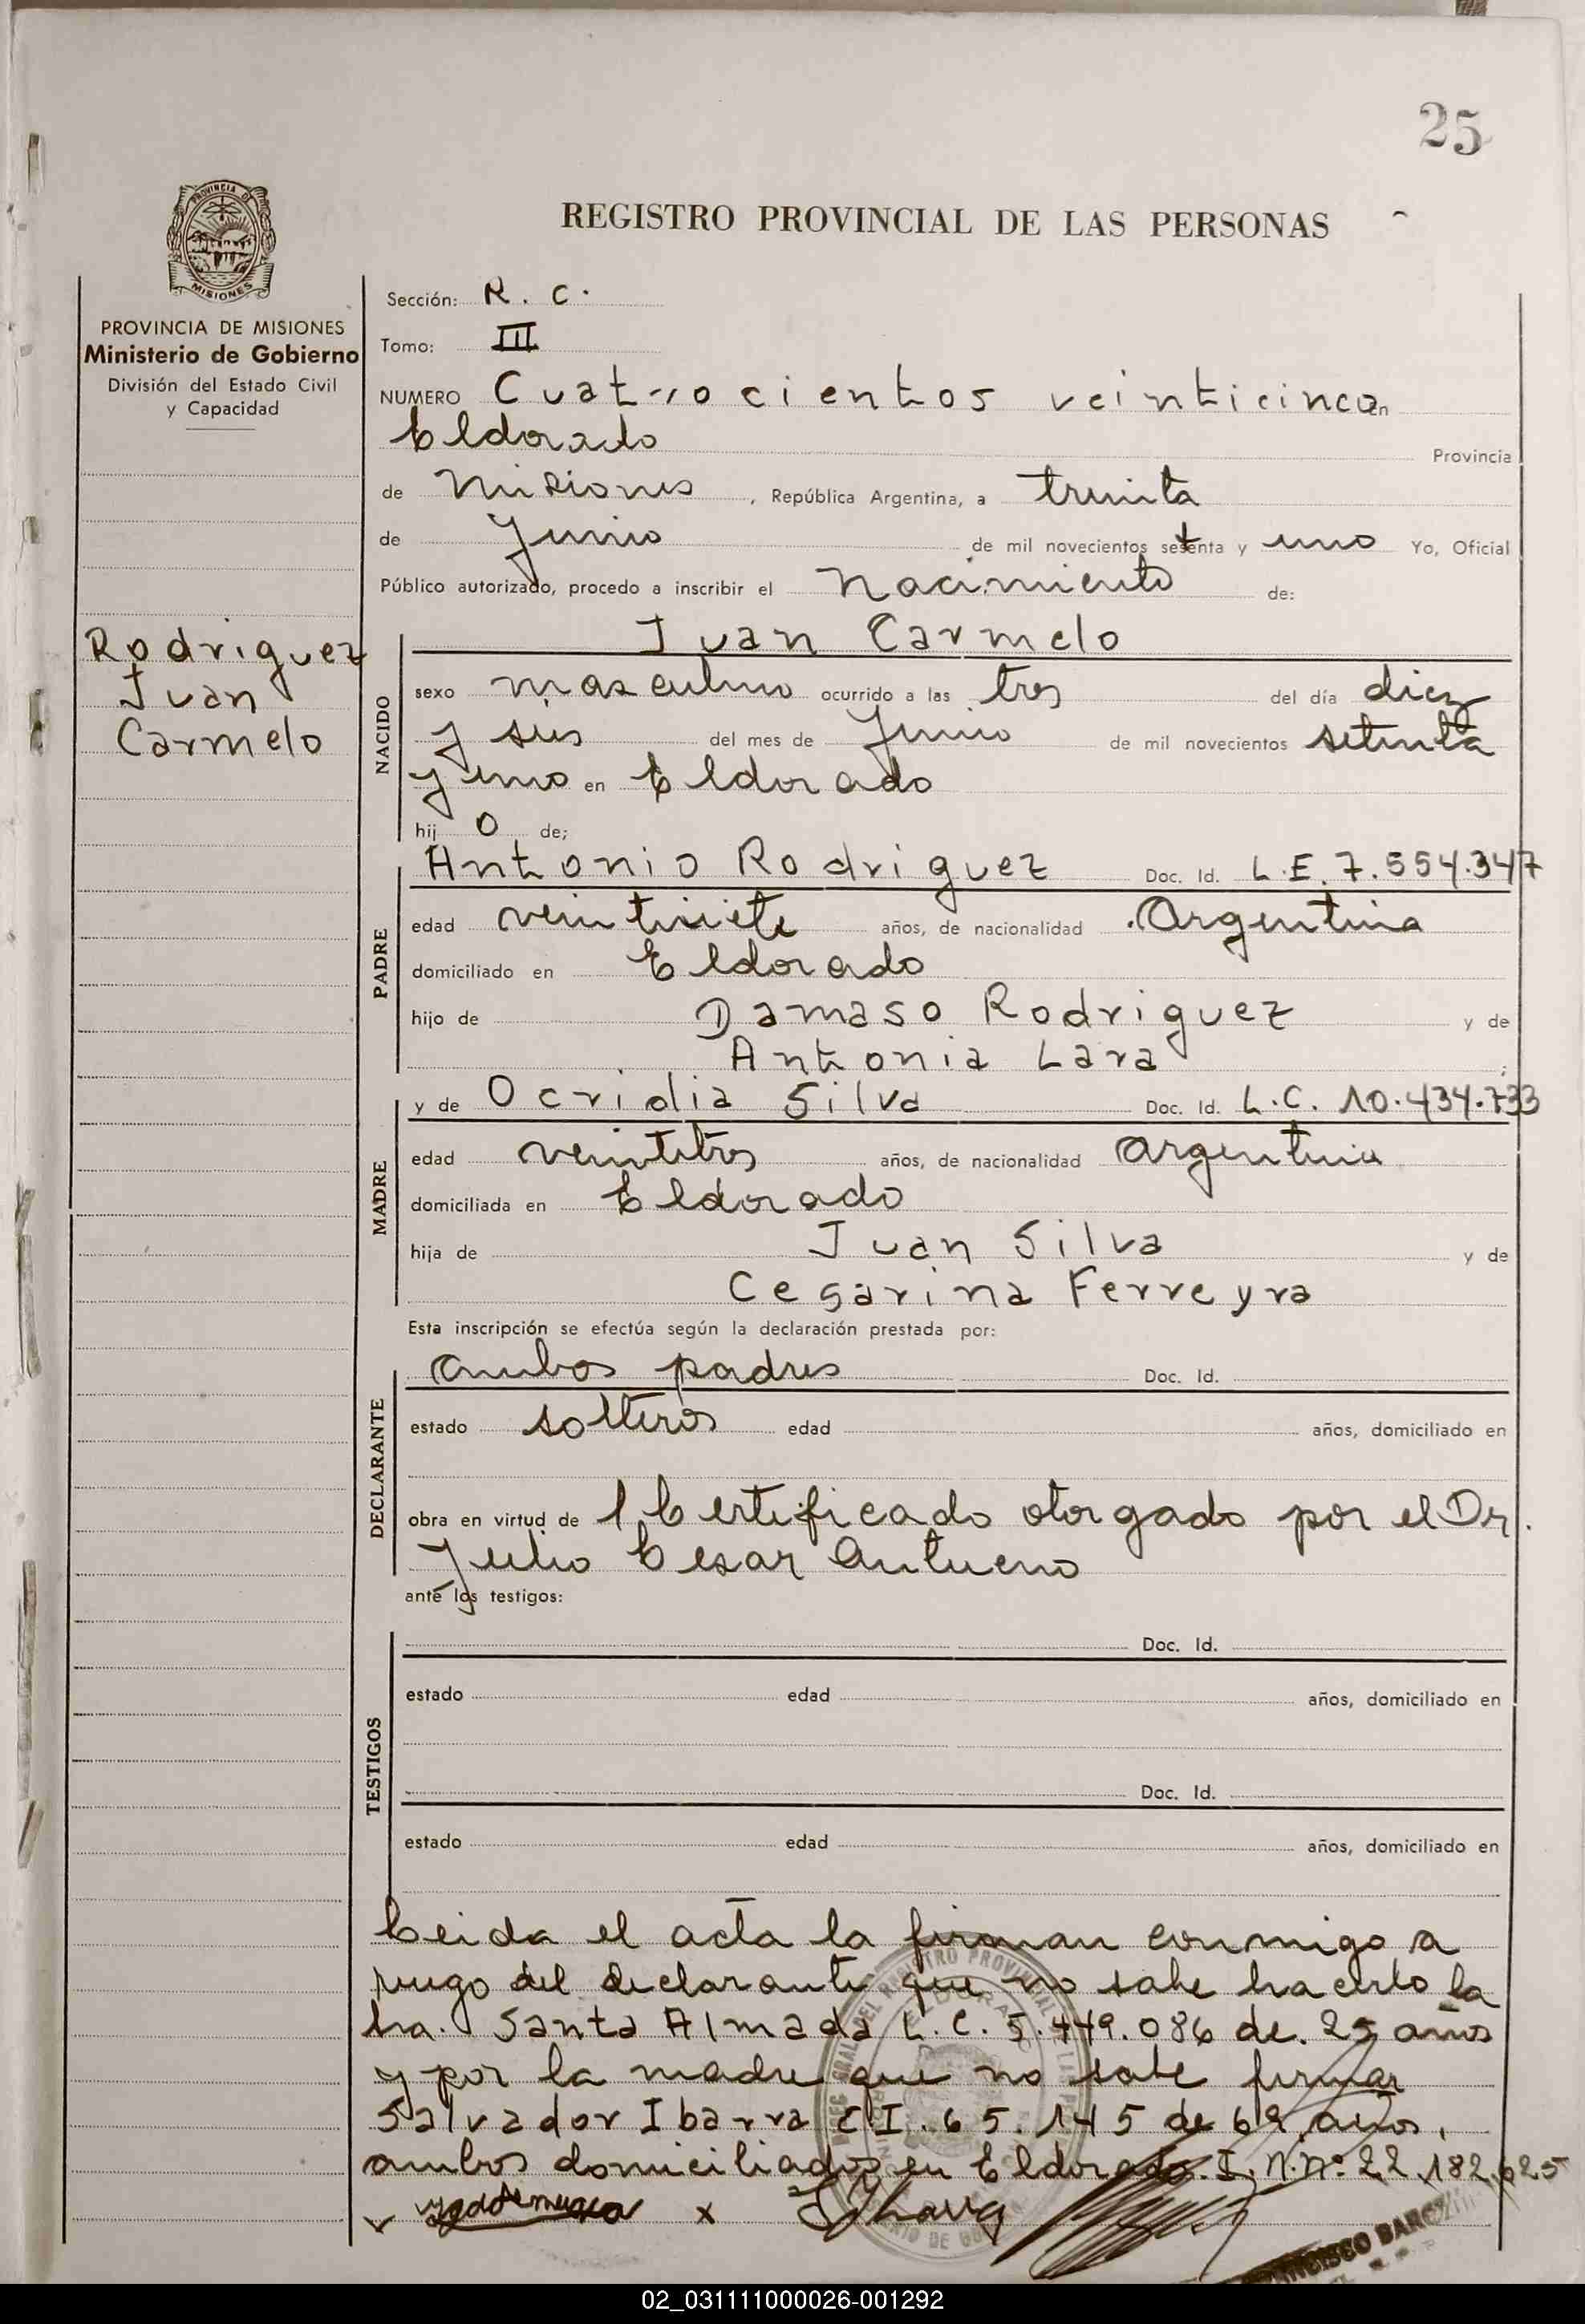 25
REGISTRO PROVINCIAL DE LAS PERSONAS
PROVINCIA DE
MISIONES
PROVINCIA DE MISIONES
Ministerio de Gobierno
División del Estado Civil
y Capacidad
Rodriguez
Juan
Carmelo
Sección: R. C.
Tomo: III
NUMERO Cuatrocientos veinticinco en
Eldorado Provincia
de Misiones, República Argentina, a treinta
de Junio de mil novecientos setenta y uno Yo, Oficial
Público autorizado, procedo a inscribir el nacimiento de:
NACIDO
Juan Carmelo
sexo masculino ocurrido a las tres del día diez
y seis del mes de Junio de mil novecientos setenta
y uno en Eldorado
hijo de;
PADRE
Antonio Rodriguez Doc. Id. L.E. 7.554.347
edad veintisiete años, de nacionalidad Argentina
domiciliado en Eldorado
hijo de Damaso Rodriguez y de
Antonia Lara ;
MADRE
y de Ocridia Silva Doc. Id. L.C. 10.434.733
edad veintitres años, de nacionalidad argentina
domiciliada en Eldorado
hija de Juan Silva y de
Cesarina Ferreyra
Esta inscripción se efectúa según la declaración prestada por:
DECLARANTE
ambos padres Doc. Id.
estado solteros edad años, domiciliado en
obra en virtud de 1 Certificado otorgado por el Dr.
Julio Cesar Antueno
ante los testigos:
TESTIGOS
Doc. Id.
estado edad años, domiciliado en
Doc. Id.
estado edad años, domiciliado en
Leida el acta la firman conmigo a
ruego del declarante que no sabe hacerlo la
Sra. Santa Almada L.C. 5.449.086 de 25 años
y por la madre que no sabe firmar
Salvador Ibarra C.I. 65.145 de 69 años,
ambos domiciliados en Eldorado. I. N.Nº 22.182.625
x SIbarra
FRANCISCO
02_031111000026-001292